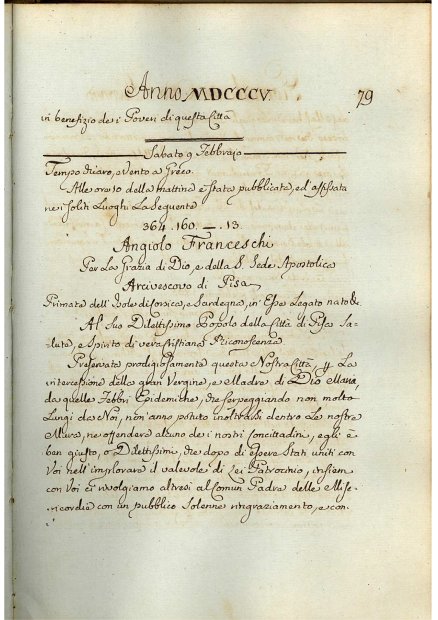 Anno MDCCCV.
79
in benefizio dei Poveri di questa Città
Sabato 9 Febbrajo
Tempo chiaro, e Vento a Greco.
Alle ore 10 della mattina è stata pubblicata, ed affissata
nei soliti Luoghi La Seguente
364. 160. — . 13.
Angiolo Franceschi
Per La Grazia di Dio, e della S. Sede Apostolica
Arcivescovo di Pisa
Primate dell' Isole di Corsica, e Sardegna, in Esse Legato nato &
Al Suo Dilettissimo Popolo della Città di Pisa Sa-
lute, e Spirito di vera Cristiana Riconoscenza.
Preservata prodigiosamente questa Nostra Città, La
intercessione della gran Vergine, e Madre di Dio Maria,
da quelle Febbri Epidemiche, che serpeggiando non molto
Lungi da Noi, non anno potuto inoltrarsi dentro Le nostre
Mura, ne offendere alcuno dei nostri Concittadini, egli è
ben giusto, o Dilettissimi, che dopo di essere Stati uniti con
Voi nell' implorare il valevole di Lei Patrocinio, insiem
con Voi ci rivolgiamo altresì al Comun Padre delle Mise-
ricordie con un pubblico Solenne ringraziamento, e con-